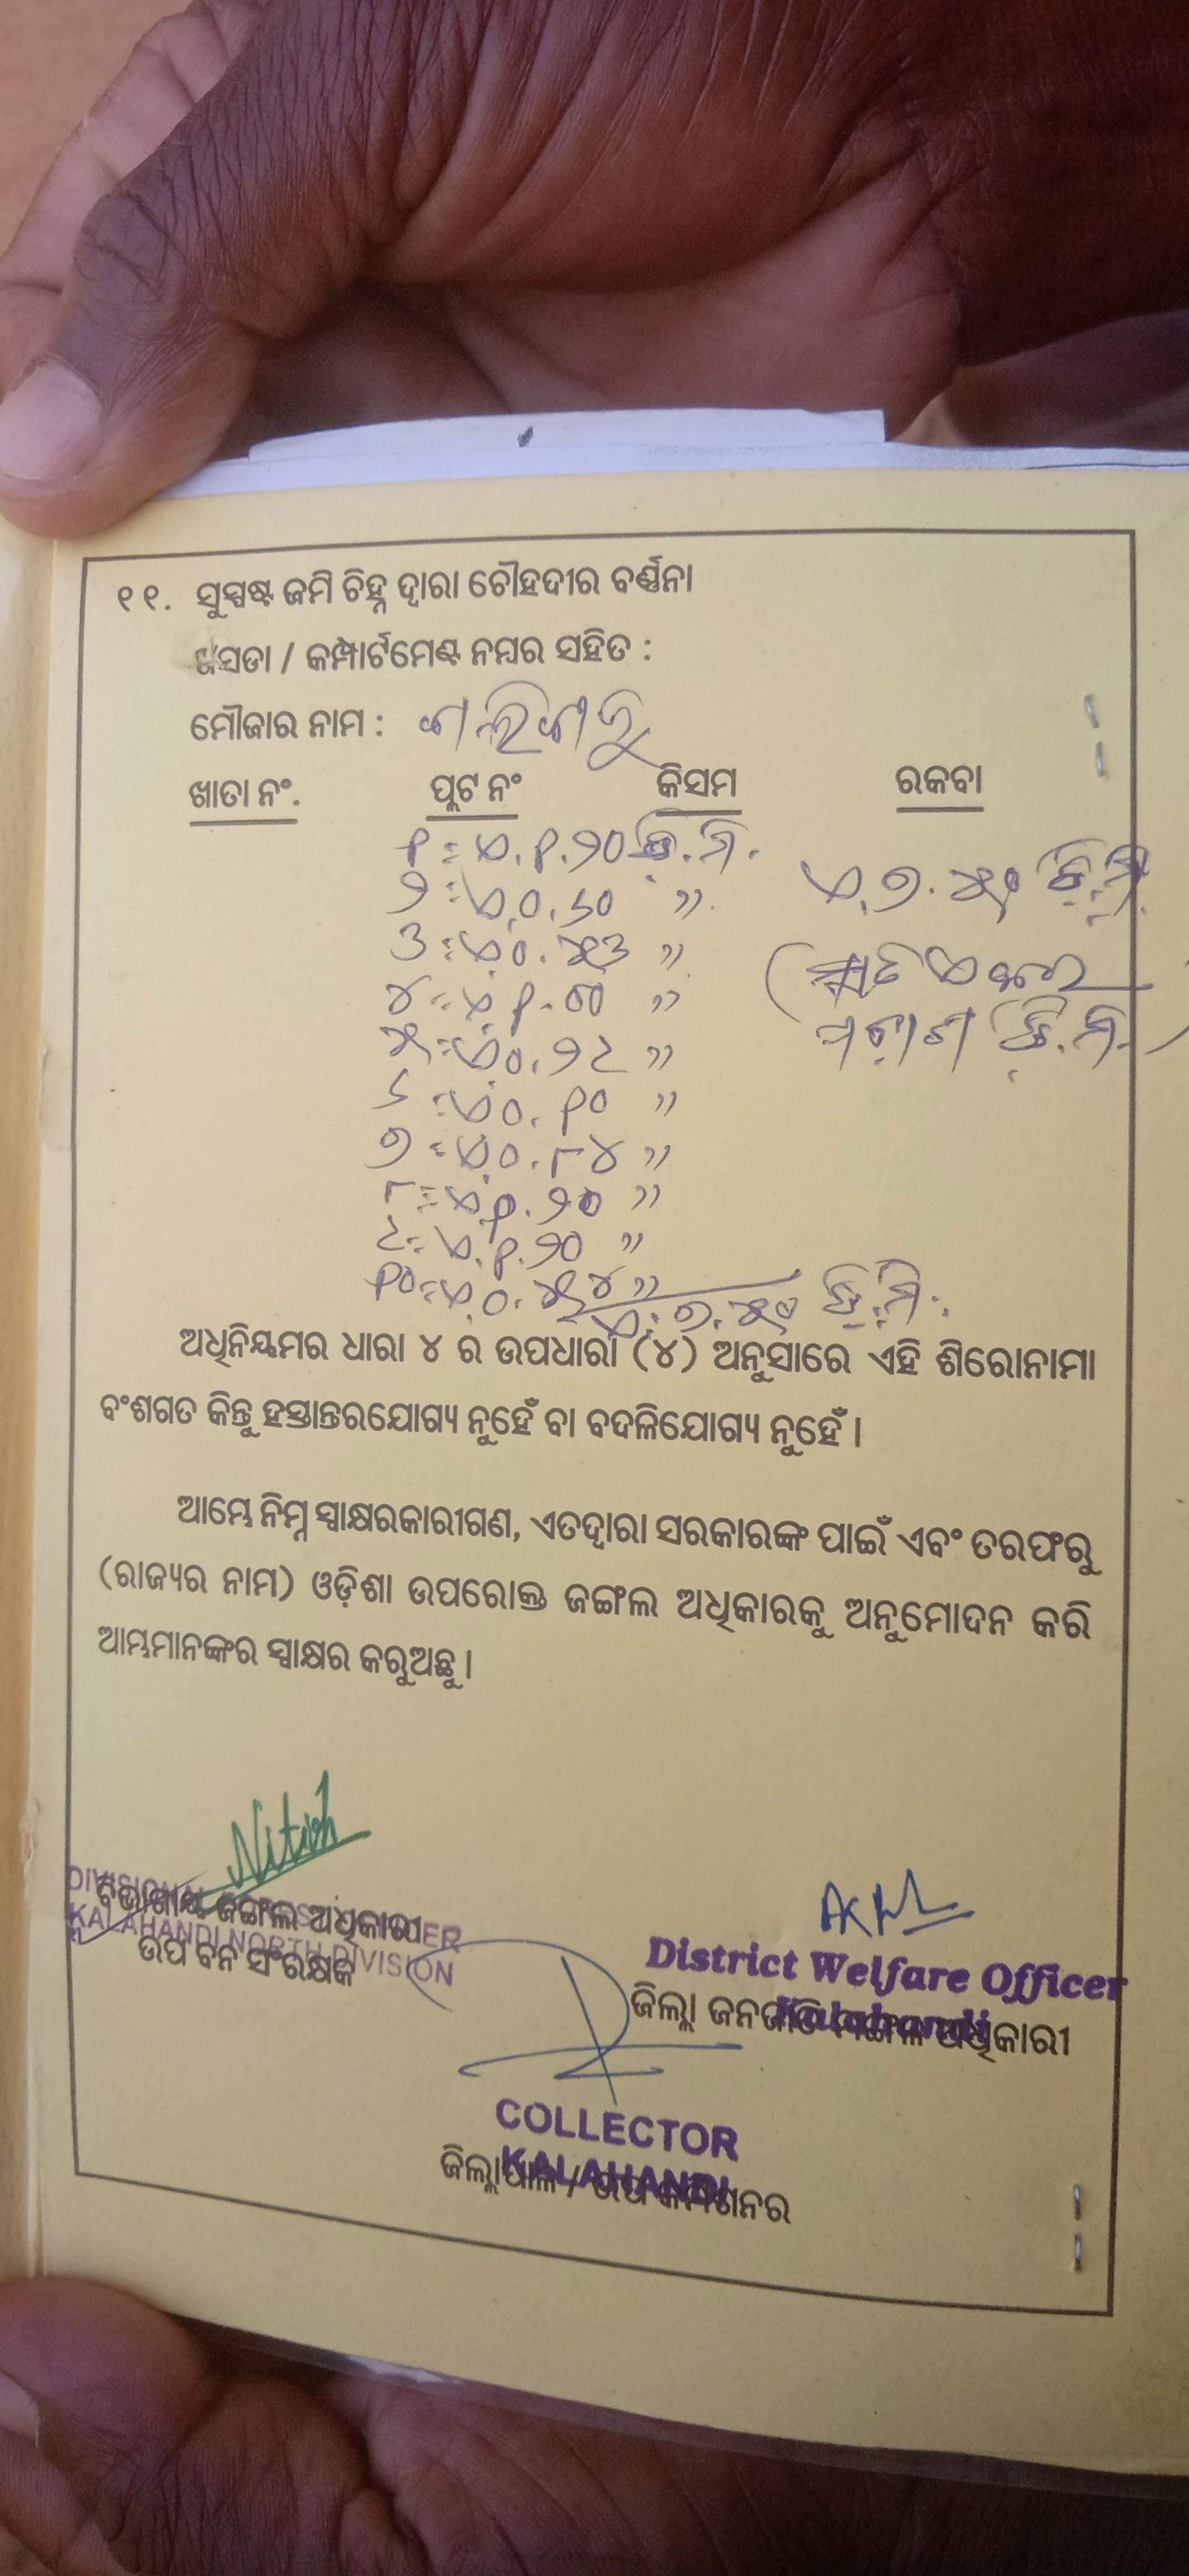 ୧୧. ସୁସ୍ପଷ୍ଟ ଜମି ଚିହ୍ନ ଦ୍ୱାରା ଚୌହଦୀର ବର୍ଣ୍ଣନା
ଖସଡା / କମ୍ପାର୍ଟମେଣ୍ଟ ନମ୍ବର ସହିତ :
ମୌଜାର ନାମ :
ଖାତା ନଂ. ପ୍ଲଟ ନଂ କିସମ ରକବା
୧ = ଏ.୧.୨୦ ଡି.ମି.
୨ = ଏ.୦.୬୦ "
୩ = ଏ.୦.୫୩ "
୪ = ଏ.୧.୦୦ "
୫ = ଏ.୦.୨୯ "
୬ = ଏ.୦.୧୦ "
୭ = ଏ.୦.୮୪ "
୮ = ଏ.୧.୨୦ "
୯ = ଏ.୧.୨୦ "
୧୦ = ଏ.୦.୫୪ "
ଏ.୭.୫୦ ଡି.ମି.
ଏ.୭.୫୦ ଡି.ମି.
(ସାତ ଏକର
ପଚାଶ ଡି.ମି.)
ଅଧିନିୟମର ଧାରା ୪ ର ଉପଧାରା (୪) ଅନୁସାରେ ଏହି ଶିରୋନାମା
ବଂଶଗତ କିନ୍ତୁ ହସ୍ତାନ୍ତରଯୋଗ୍ୟ ନୁହେଁ ବା ବଦଳିଯୋଗ୍ୟ ନୁହେଁ ।
ଆମ୍ଭେ ନିମ୍ନ ସ୍ୱାକ୍ଷରକାରୀଗଣ, ଏତଦ୍ୱାରା ସରକାରଙ୍କ ପାଇଁ ଏବଂ ତରଫରୁ
(ରାଜ୍ୟର ନାମ) ଓଡ଼ିଶା ଉପରୋକ୍ତ ଜଙ୍ଗଲ ଅଧିକାରକୁ ଅନୁମୋଦନ କରି
ଆମ୍ଭମାନଙ୍କର ସ୍ୱାକ୍ଷର କରୁଅଛୁ ।
Nitish
DIVISIONAL FOREST OFFICER
ବିଭାଗୀୟ ଜଙ୍ଗଲ ଅଧିକାରୀ
KALAHANDI NORTH DIVISION
ଉପ ବନ ସଂରକ୍ଷକ
District Welfare Officer
Kalahandi
ଜିଲ୍ଲା ଜନଜାତି ମଙ୍ଗଳ ଅଧିକାରୀ
COLLECTOR
KALAHANDI
ଜିଲ୍ଲାପାଳ / ଉପ କମିଶନର